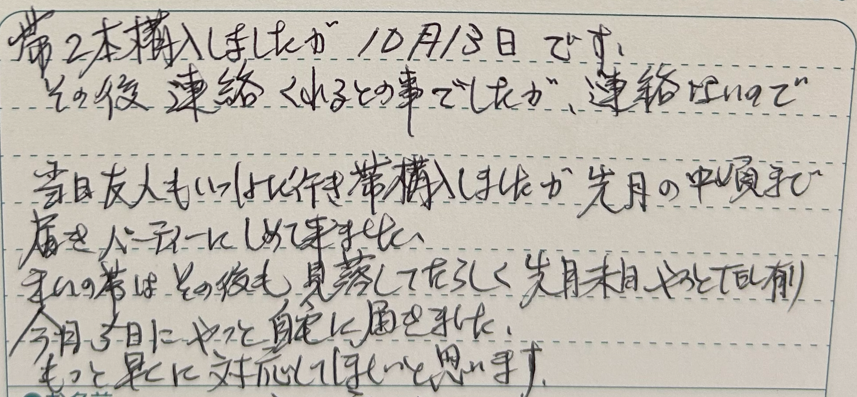 帯2本構入しましたが 10月13日です。
その後 連絡くれるとの事でしたが、連絡ないので
当日友人もいっしょに行き帯構入しましたが先月の中頃まで
届きパーティーにしめて来ました、
まいの帯はその後も見落してたらしく先月末日やっとTEL有り
今月5日にやっと自宅に届きました、
もっと早くに対応してほしいと思います。